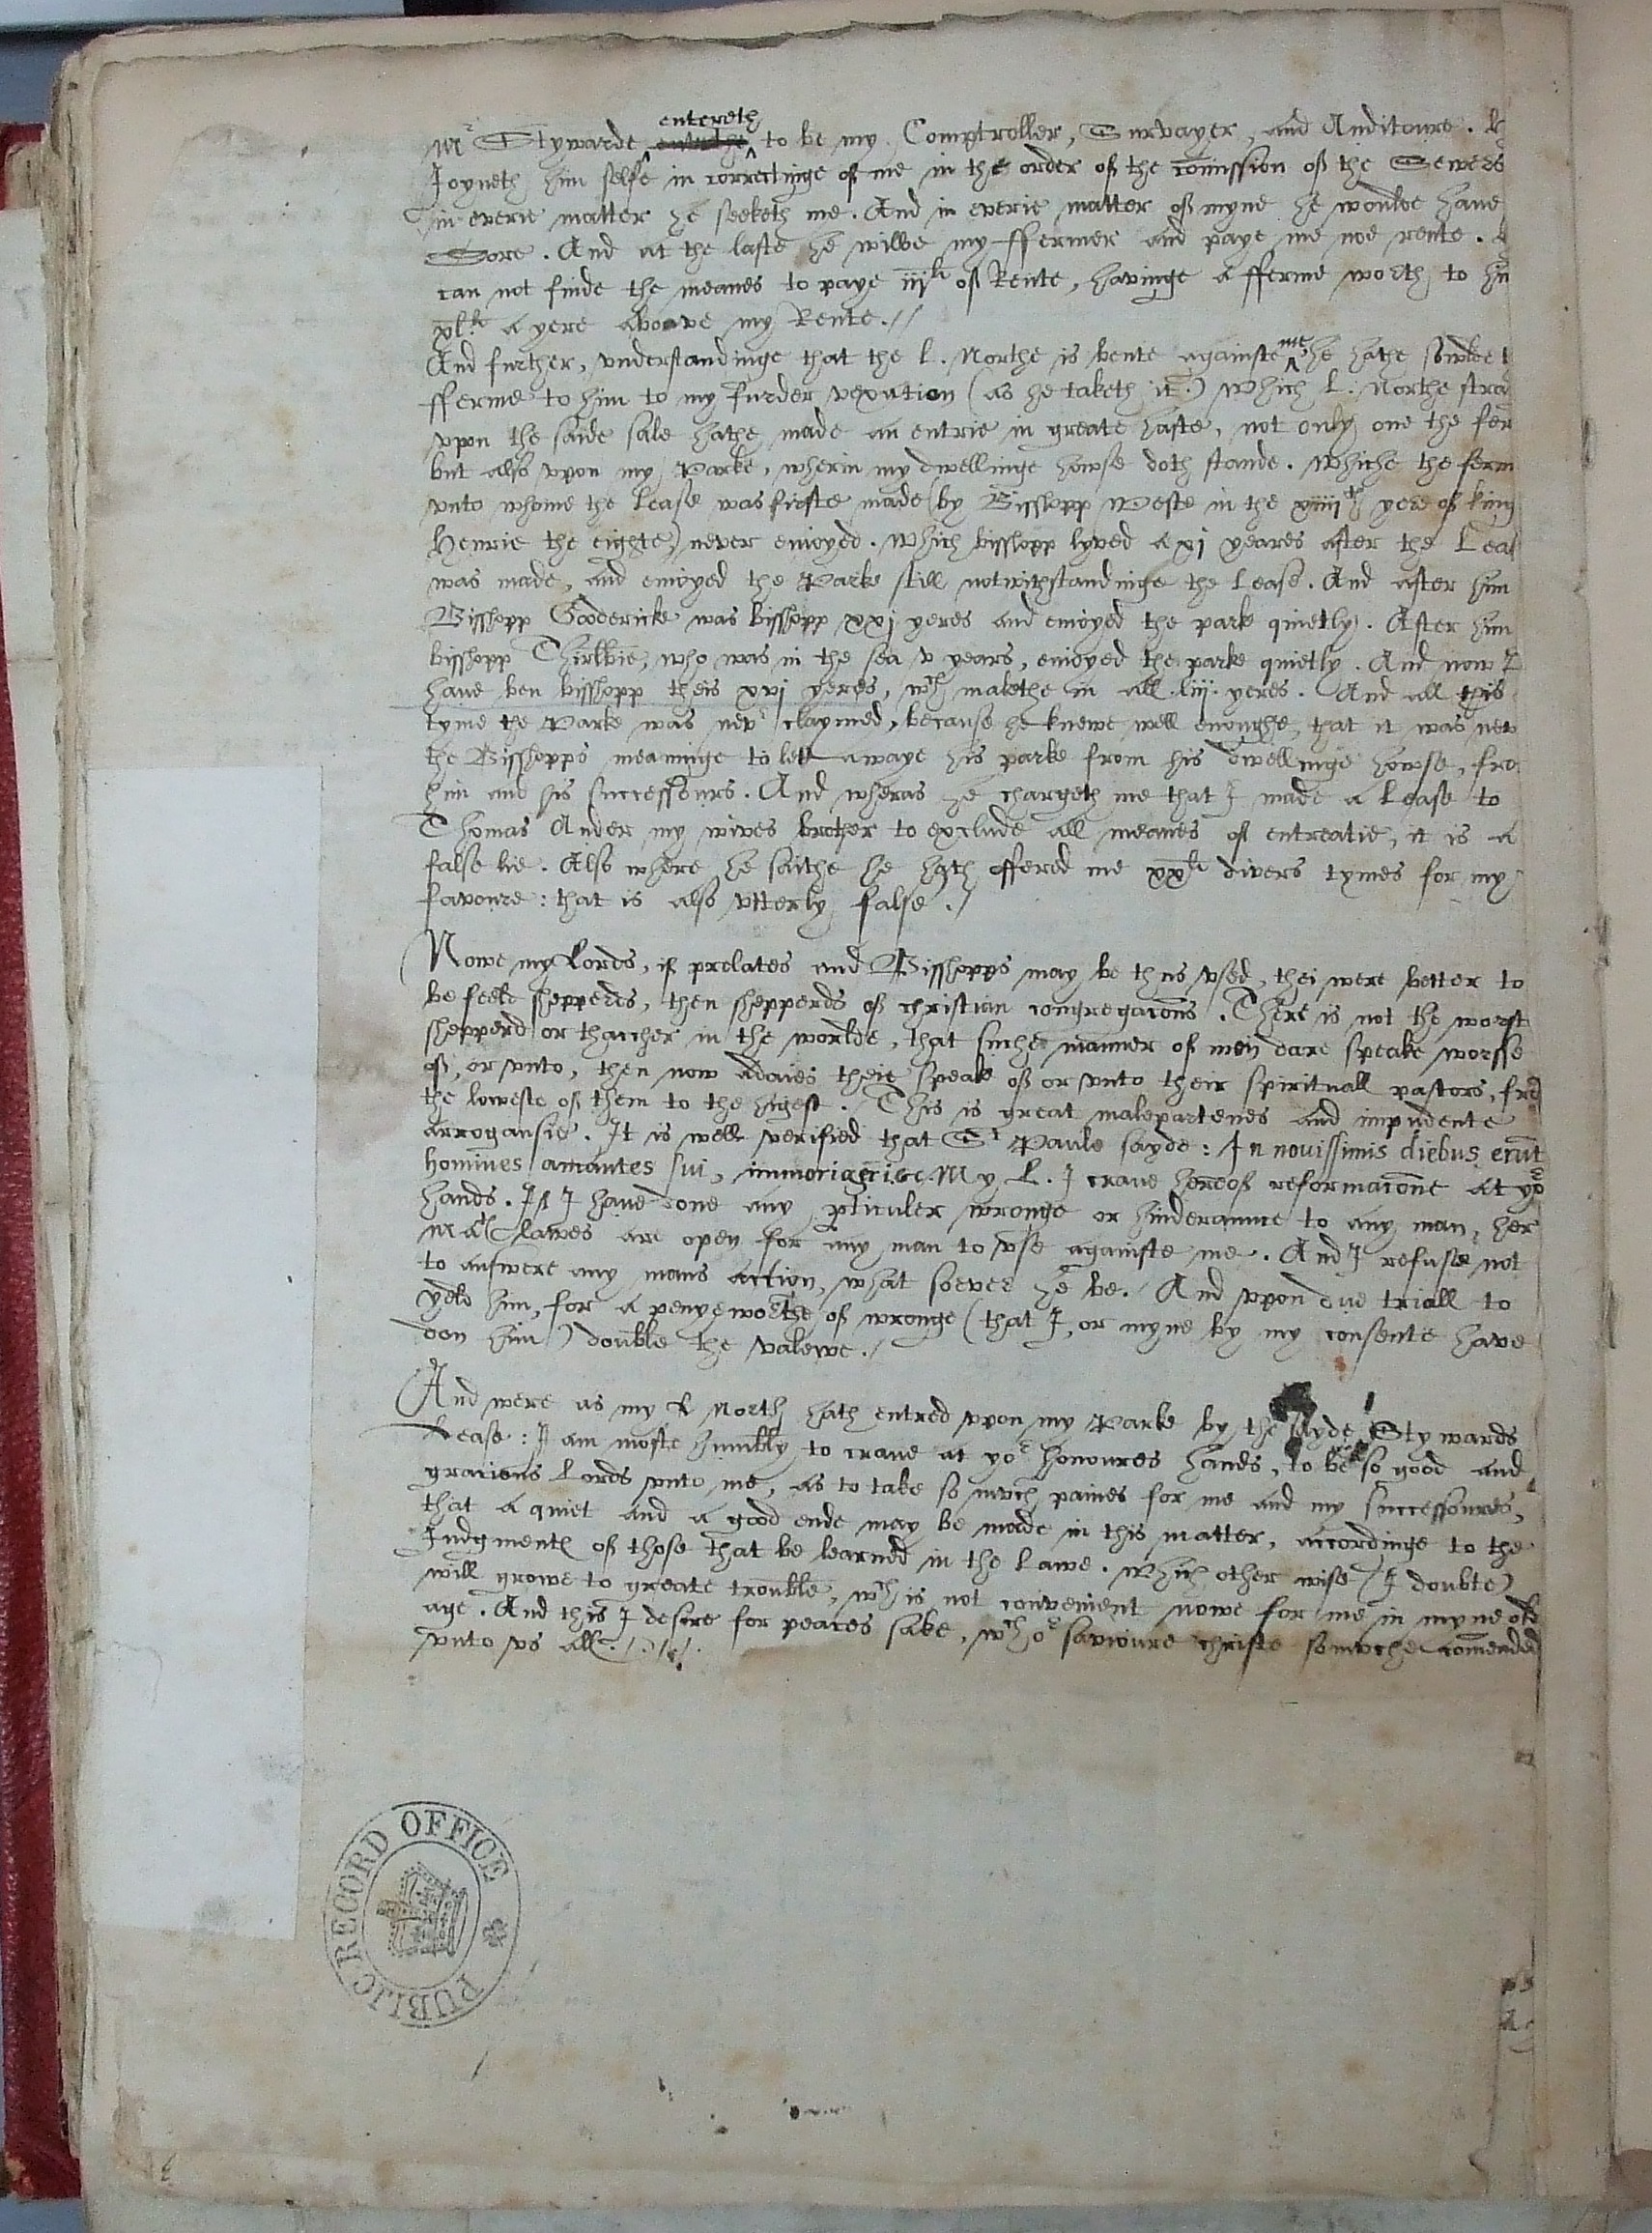 entereth
Mr Stywarde to be my Comptroller, Survayer, and Auditoure.
Joyneth him selfe in correctinge of me in the order of the comission of the Sewers
in everie matter he seeketh me. And in everie matter of myne he woulde have
. And at the laste he wilbe my ffermer and paye me noe rente.
can not finde the meanes to paye iijli of Rente, havinge a fferme worth to
xlli a yere above my Rente.//
me
And further, understandinge that the L. Northe is bente againste he hathe
fferme to him to my furder vexation (as he taketh it.) which L. Northe
vpon the saide sale hathe made an entrie in greate haste, not only one the fer
but also vpon my Parke, wherin my dwellinge howse doth stande. Whiche the ferm
vnto whome the Lease was firste made (by Bisshopp Weste in the xiiijth yere of king
Henrie the eighte) never enioyed. which bisshopp lyved a xj yeares after the Lea
was made, and enioyed the Parke still notwithstandinge the lease. And after him
Bisshopp Gooderick was bisshopp xxj yeres and enioyed the park quietly. After him
bisshopp Thirlbie, who was in the sea v years, enioyed the parke quietly. And now I
have ben bisshopp theis xvj yeres, wch makethe in all liij. yeres. And all this
tyme the Parke was nevr claymed, because he knewe well enoughe, that it was nev
the Bisshopps meaninge to lett awaye his parke from his dwellinge howse, fro
him and his successours. And wheras he chargeth me that I made a Lease to
Thomas Ander my wives brother to exclude all meanes of entreatie, it is a
false lie. Also where he saithe he hath offered me xxli divers tymes for my
favoure: that is also vtterly false./
Nowe my Lords, if prelates and Bisshopps may be thus vsed, thei were better to
be feeld shepperds, then shepperds of christian congregacons. There is not the worst
shepperd or thatcher in the worlde, that suche manner of men dare speake worsse
of, or vnto, then now adaies theie speak of or vnto their spirituall pastors, fro
the loweste of them to the higest. This is great malepartenes and impudente
arrogansie. It is well verified that St Paule sayde: In novissimis diebus erunt
homines amantes sui, My L. I crave hereof reformacone at yor
hands. If I have done any pticuler wronge or hinderaunce to any man, her
lawes are open for any man to vse againste me. And I refuse not
to answere any mans action, what soever he be. And vpon due triall to
yeld him, for a penyeworthe of wronge (that I, or myne by my consente have
don him) double the valewe./
And were as my L North hath entred vpon my Parke by the Stywards
Lease: I am moste humbly to crave at yor honoures hands, to be so good and
gracious Lords vnto me, as to take so much paines for me and my successoures,
that a quiet and a good ende may be made in this matter, accordinge to the
Judgment of those that be learned in the Lawe. Which other wise (I doubte)
will growe to greate trouble, wch is not convenient nowe for me in myne olde
age. And this I desire for peaces sake, wch or savioure christe somuche comended
vnto vs all.
PUBLIC RECORD OFFICE